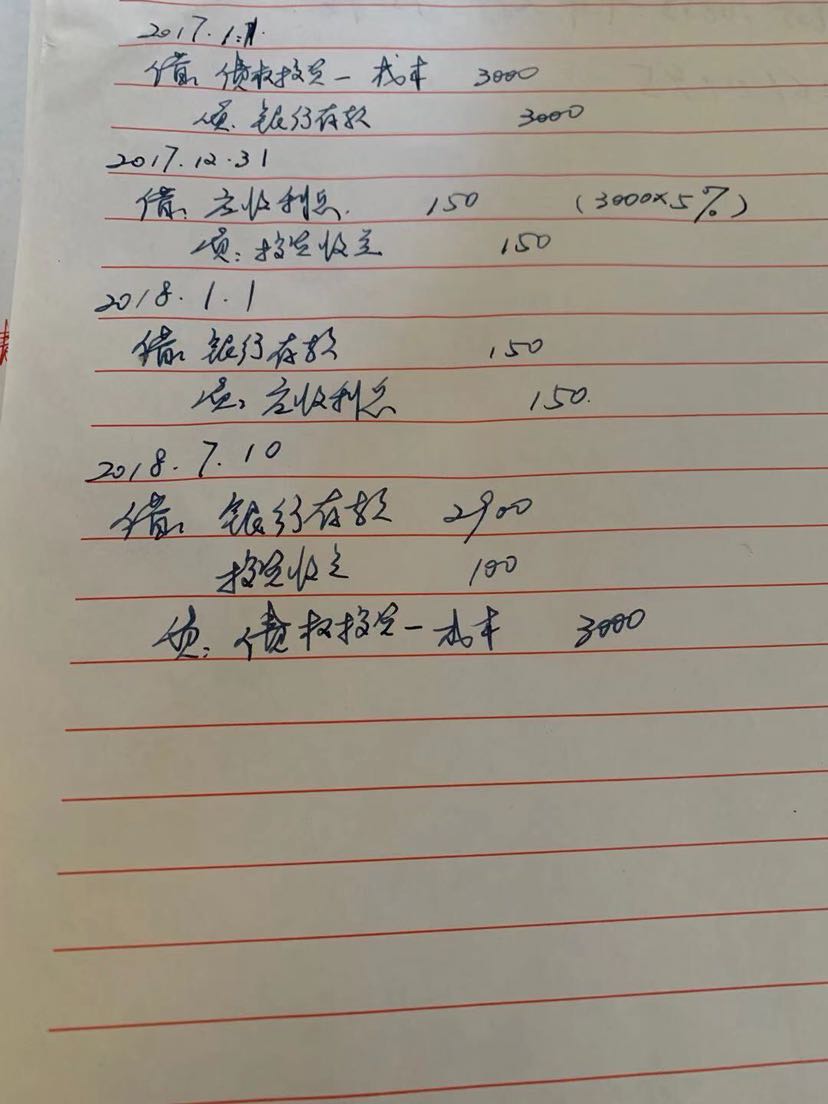 2017.1.1.
借: 债权投资—成本 3000
贷: 银行存款 3000
2017.12.31
借: 应收利息. 150 (3000×5%)
贷: 投资收益 150
2018.1.1
借: 银行存款 150
贷: 应收利息 150.
2018.7.10
借: 银行存款 2900
投资收益 100
贷: 债权投资—成本 3000